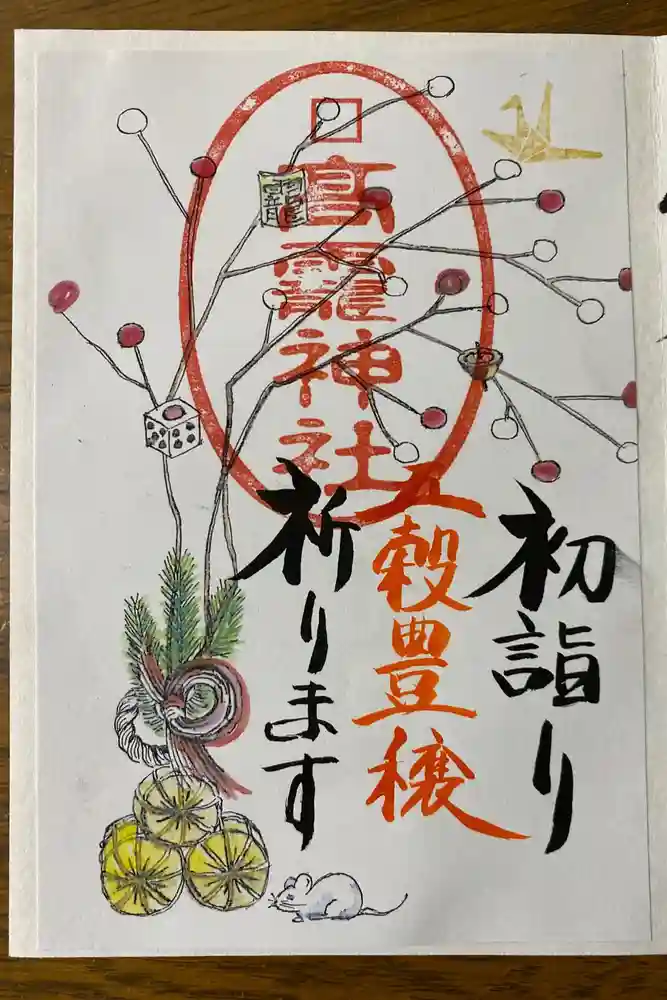 初詣り
五穀豊穣
祈ります
高靇神社
靇